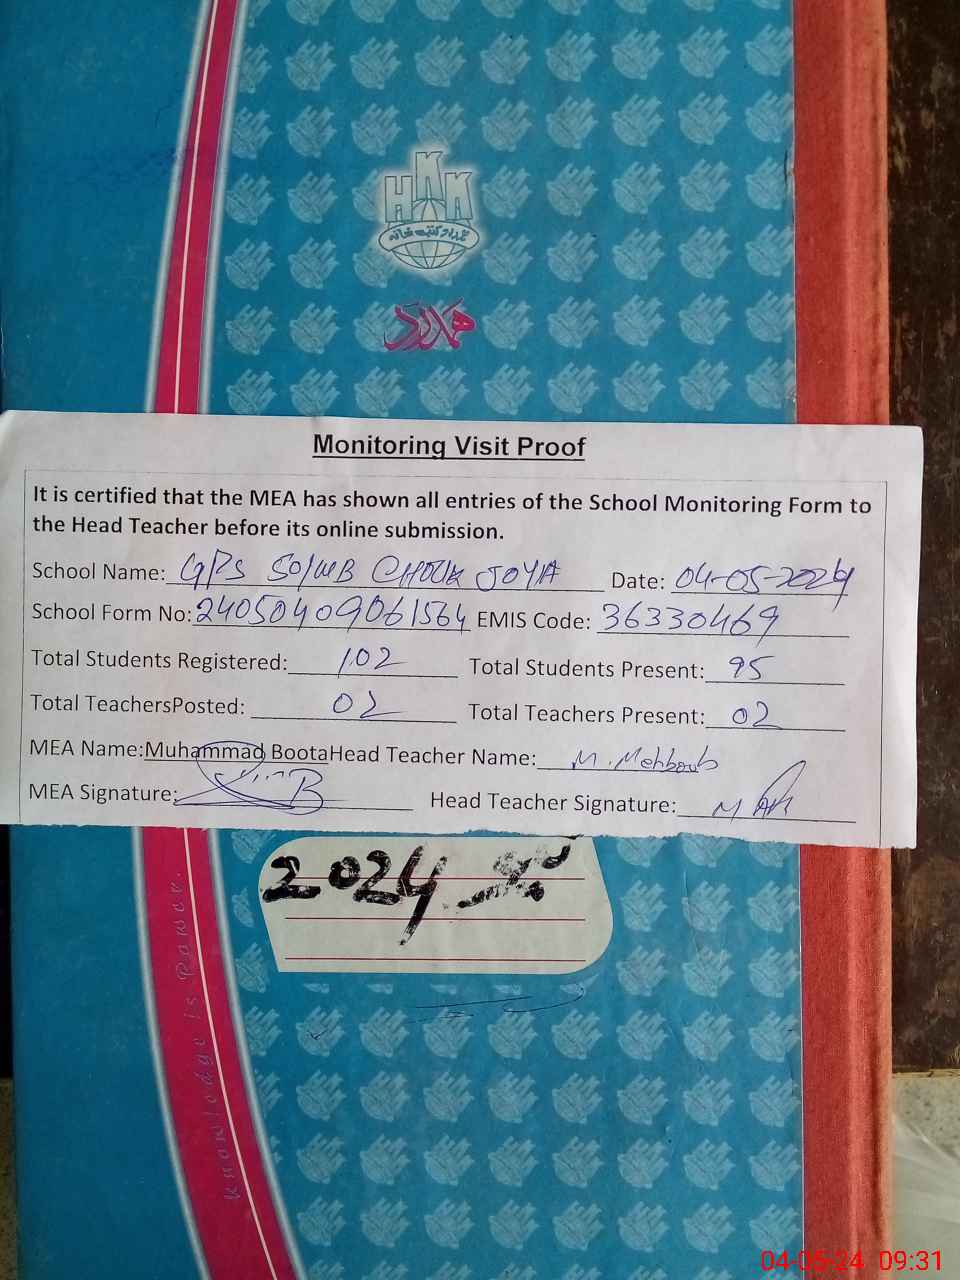 HKK
ہمدرد کتب خانہ
ہمدرد
Monitoring Visit Proof
It is certified that the MEA has shown all entries of the School Monitoring Form to
the Head Teacher before its online submission.
School Name: GPS 50/WB CHOUK JOYA Date: 04-05-2024
School Form No: 24050409061564 EMIS Code: 36330469
Total Students Registered: 102 Total Students Present: 95
Total TeachersPosted: 02 Total Teachers Present: 02
MEA Name:Muhammad BootaHead Teacher Name: M. Mehboub
MEA Signature: Head Teacher Signature:
2024
Knowledge is Power.
04-05-24 09:31